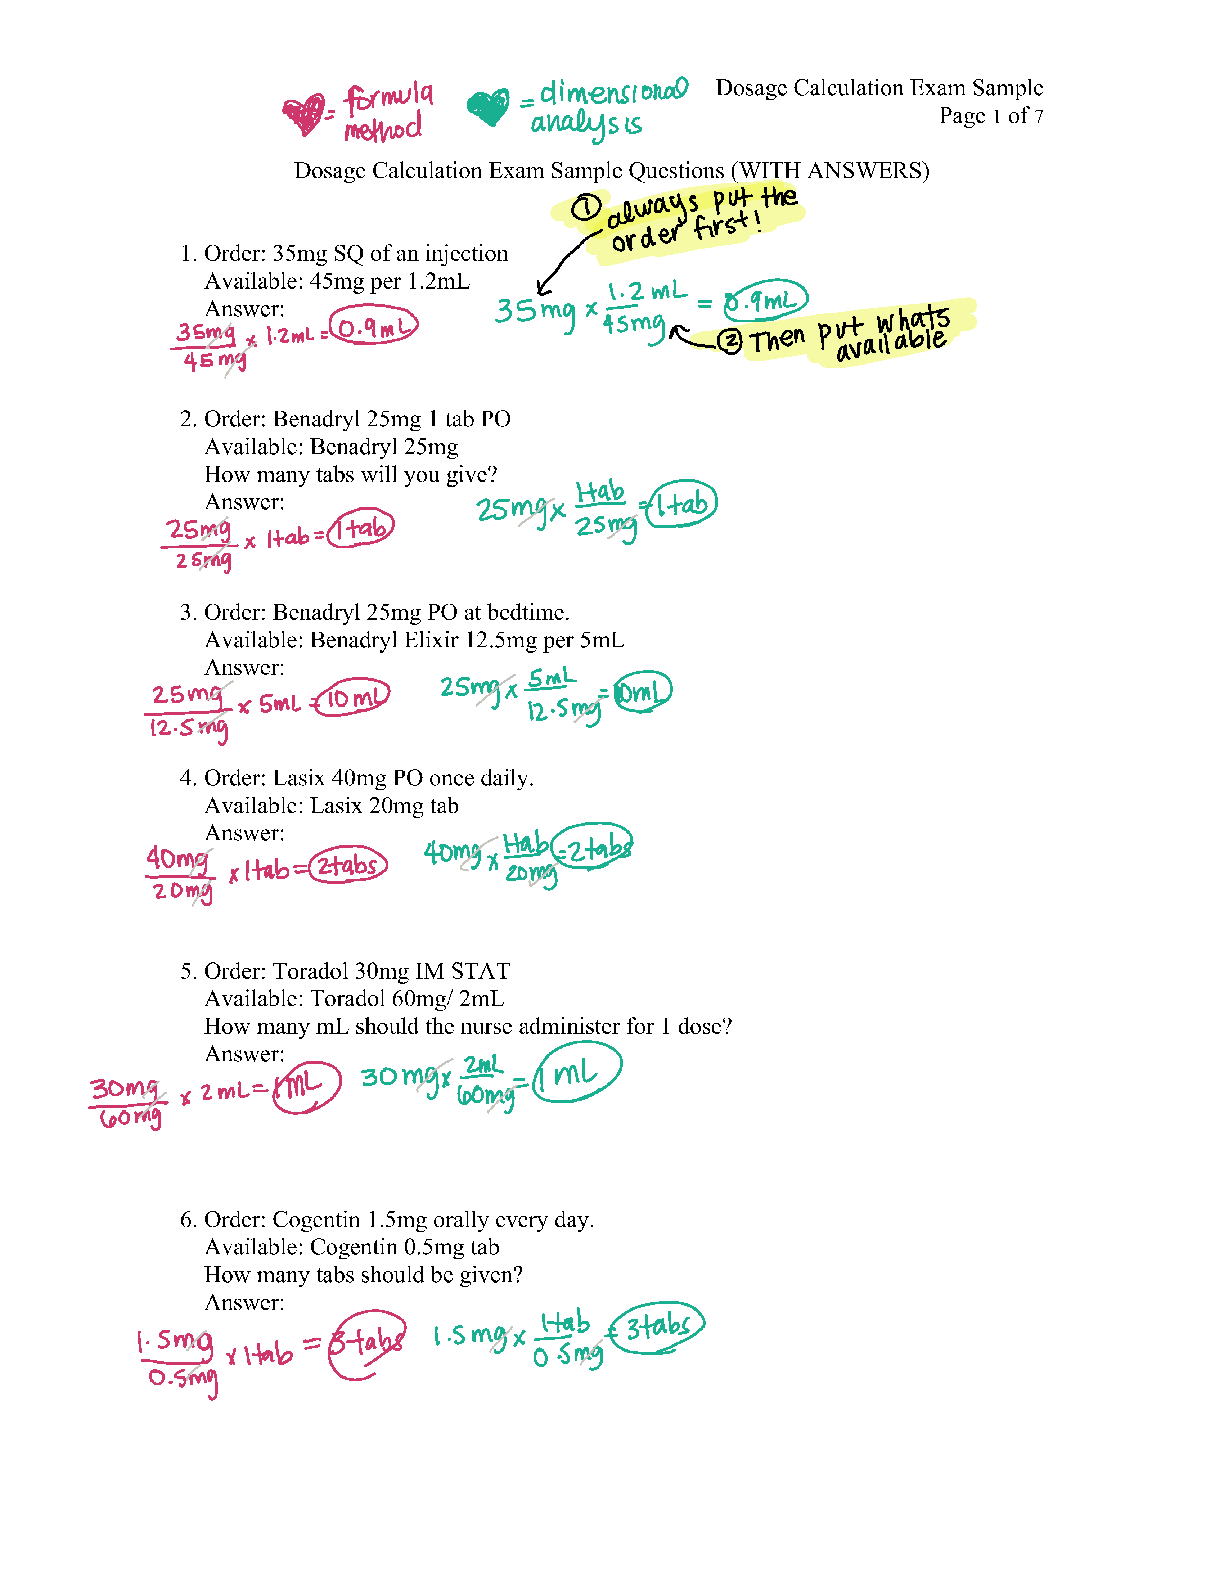 = formula method
= dimensional analysis
Dosage Calculation Exam Sample
Page 1 of 7
Dosage Calculation Exam Sample Questions (WITH ANSWERS)
① always put the order first!
1. Order: 35mg SQ of an injection
Available: 45mg per 1.2mL
Answer:
35mg/45mg x 1.2mL = 0.9mL
35mg x 1.2mL/45mg = 0.9mL
② Then put whats available
2. Order: Benadryl 25mg 1 tab PO
Available: Benadryl 25mg
How many tabs will you give?
Answer:
25mg/25mg x 1tab = 1tab
25mg x 1tab/25mg = 1tab
3. Order: Benadryl 25mg PO at bedtime.
Available: Benadryl Elixir 12.5mg per 5mL
Answer:
25mg/12.5mg x 5mL = 10mL
25mg x 5mL/12.5mg = 10mL
4. Order: Lasix 40mg PO once daily.
Available: Lasix 20mg tab
Answer:
40mg/20mg x 1tab = 2tabs
40mg x 1tab/20mg = 2tabs
5. Order: Toradol 30mg IM STAT
Available: Toradol 60mg/ 2mL
How many mL should the nurse administer for 1 dose?
Answer:
30mg/60mg x 2mL = 1mL
30mg x 2mL/60mg = 1mL
6. Order: Cogentin 1.5mg orally every day.
Available: Cogentin 0.5mg tab
How many tabs should be given?
Answer:
1.5mg/0.5mg x 1tab = 3tabs
1.5mg x 1tab/0.5mg = 3tabs